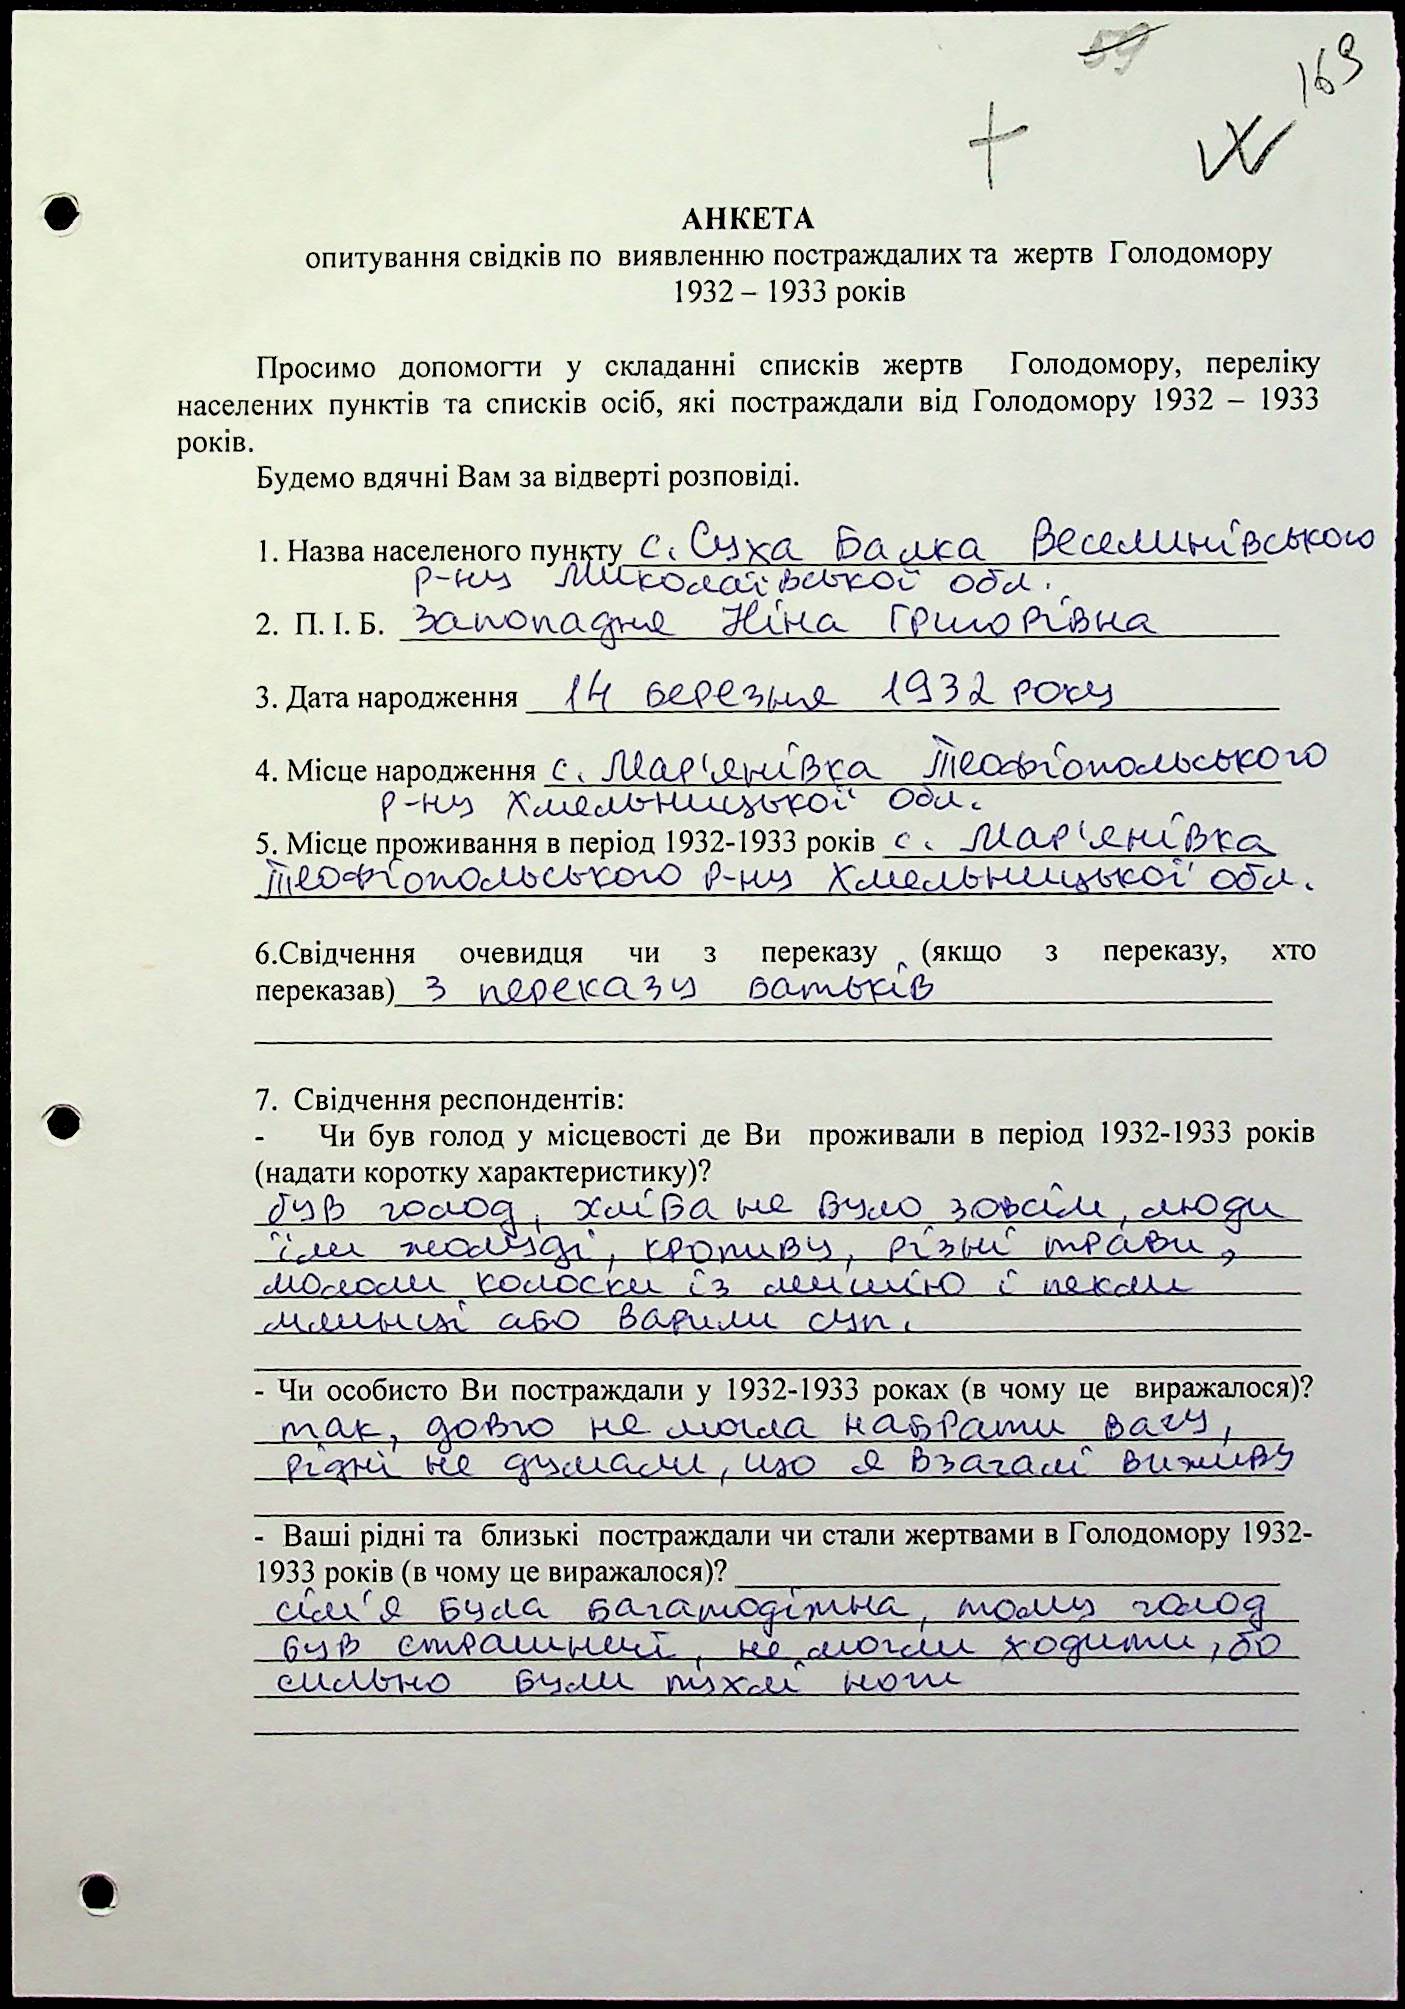 59
169
АНКЕТА
опитування свідків по виявленню постраждалих та жертв Голодомору
1932 – 1933 років
Просимо допомогти у складанні списків жертв Голодомору, переліку
населених пунктів та списків осіб, які постраждали від Голодомору 1932 – 1933
років.
Будемо вдячні Вам за відверті розповіді.
1. Назва населеного пункту с. Суха Балка Веселинівського
р-ну Миколаївської обл.
2. П. І. Б. Западня Ніна Григорівна
3. Дата народження 14 березня 1932 року
4. Місце народження с. Мар'янівка Теофіопольського
р-ну Хмельницької обл.
5. Місце проживання в період 1932-1933 років с. Мар'янівка
Теофіопольського р-ну Хмельницької обл.
6.Свідчення очевидця чи з переказу (якщо з переказу, хто
переказав) з переказу батьків
7. Свідчення респондентів:
- Чи був голод у місцевості де Ви проживали в період 1932-1933 років
(надати коротку характеристику)?
був голод, хліба не було зовсім, люди
їли жолуді, кропиву, різні трави,
мололи колоски із
млинці або варили суп.
- Чи особисто Ви постраждали у 1932-1933 роках (в чому це виражалося)?
так, довго не могла набрати вагу,
рідні не думали, що я взагалі виживу
- Ваші рідні та близькі постраждали чи стали жертвами в Голодомору 1932-
1933 років (в чому це виражалося)?
сім'я була багатодітна, тому голод
був страшний, не могли ходити, бо
сильно були пухлі ноги